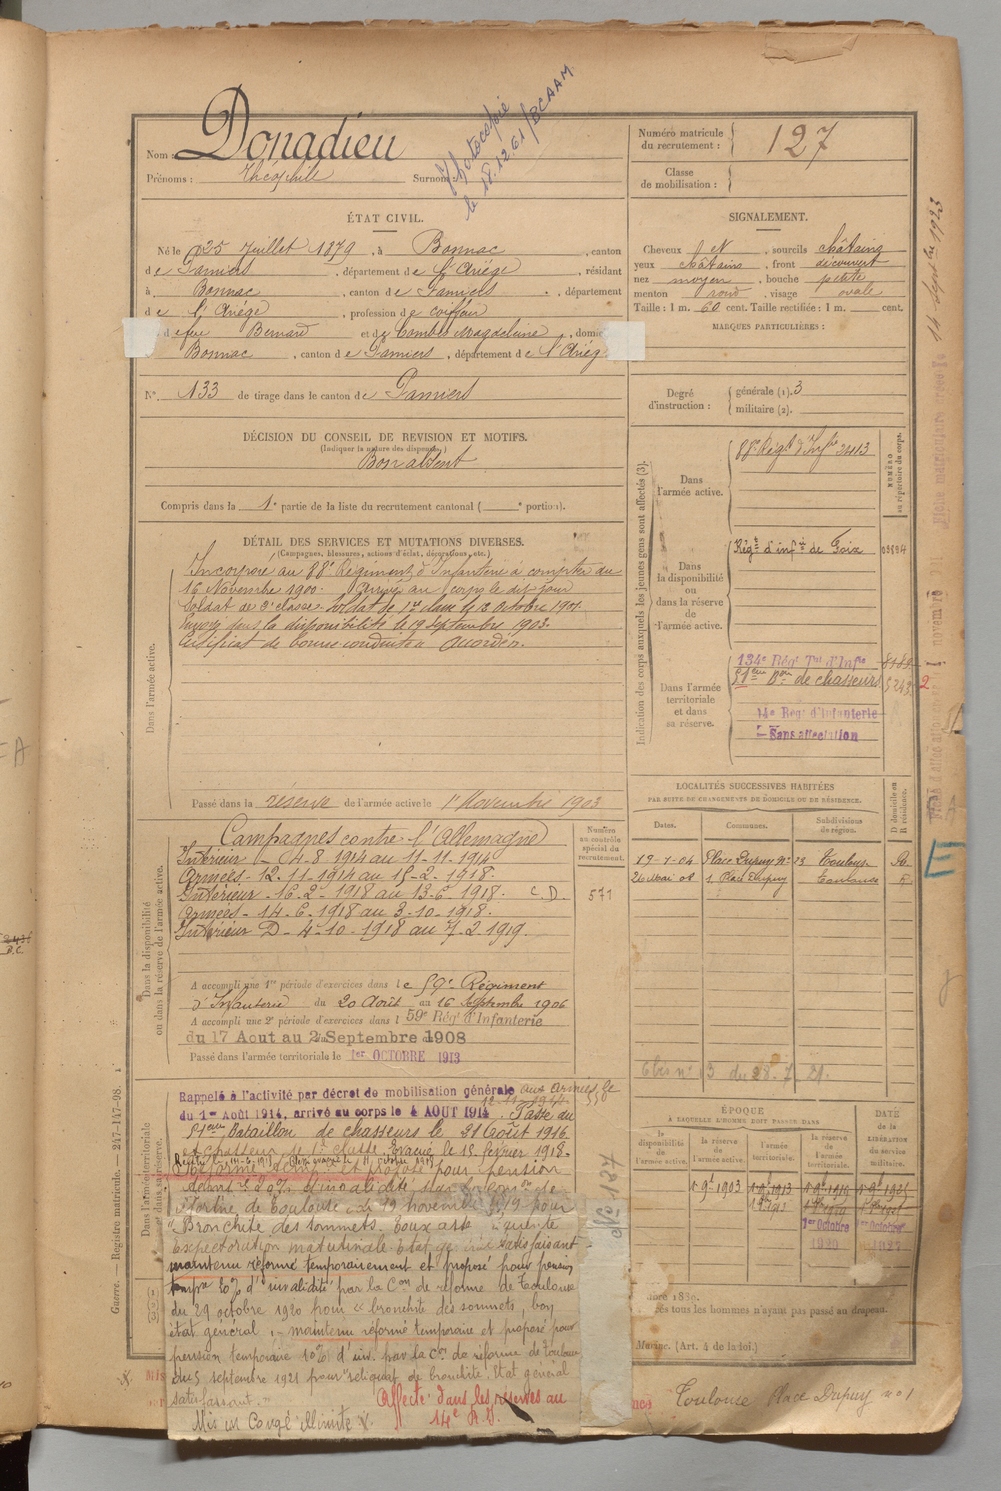 Nom : Donadieu
Prénoms : Théophile Surnom :
Photocopie
le 18.12.61/BCAAM
Numéro matricule
du recrutement : 127
Classe
de mobilisation :
ÉTAT CIVIL.
Né le 25 Juillet 1879, à Bonnac, canton
de Pamiers, département de l'Ariége, résidant
à Bonnac, canton de Pamiers, département
de l'Ariége, profession de coiffeur
feu Bernard et de Combes Magdeleine, domic
Bonnac, canton de Pamiers, département de l'Ariég
N°. 133 de tirage dans le canton de Pamiers
SIGNALEMENT.
Cheveux N, sourcils châtains
yeux châtains, front découvert
nez moyen, bouche petite
menton rond, visage ovale
Taille : 1 m. 60 cent. Taille rectifiée : 1 m. cent.
MARQUES PARTICULIÈRES :
Degré
d'instruction :
générale (1). 3
militaire (2).
DÉCISION DU CONSEIL DE REVISION ET MOTIFS.
(Indiquer la nature des dispenses.)
Bon absent
Compris dans la 1e partie de la liste du recrutement cantonal ( e portion).
DÉTAIL DES SERVICES ET MUTATIONS DIVERSES.
(Campagnes, blessures, actions d'éclat, décorations, etc.)
Dans l'armée active.
Incorporé au 88e Régiment d'Infanterie à compter du
16 Novembre 1900. Arrivé au corps le dit jour
Soldat de 2e classe. Soldat de 1re classe le 12 Octobre 1901.
Envoyé dans la disponibilité le 19 Septembre 1903.
Certificat de bonne conduite accordé.
Passé dans la réserve de l'armée active le 1er Novembre 1903
Indication des corps auxquels les jeunes gens sont affectés (3).
NUMÉRO
au répertoire du corps.
Dans
l'armée active.
88e Régt d'Infie 3413
Dans
la disponibilité
ou dans la réserve
de
l'armée active.
Régt d'infie de Foix 03894
Dans l'armée
territoriale
et dans
sa réserve.
134e Régt Tal d'Infie
51ème Bon de chasseurs 5243 2
14e Régt d'Infanterie
Sans affectation
LOCALITÉS SUCCESSIVES HABITÉES
PAR SUITE DE CHANGEMENTS DE DOMICILE OU DE RÉSIDENCE.
Dates. Communes. Subdivisions
de région. D domicile ou
R résidence.
19-1-04 Place Dupuy N° 13 Toulouse
26 Mai 08 1, Place Dupuy Toulouse
Dans la disponibilité
ou dans la réserve de l'armée active.
Numéro
au contrôle
spécial du
recrutement.
571
Campagnes contre l'Allemagne
Intérieur - 4-8-1914 au 11-11-1914
Armées - 12-11-1914 au 15-2-1918.
Intérieur - 16-2-1918 au 13-6-1918. C.D.
Armées - 14-6-1918 au 3-10-1918.
Intérieur D - 4-10-1918 au 7-2-1919.
A accompli une 1re période d'exercices dans le 59e Régiment
d'Infanterie du 20 Août au 16 Septembre 1906
A accompli une 2e période d'exercices dans l 59e Régt d'Infanterie
du 17 Aout au 2 Septembre 1908
Passé dans l'armée territoriale le 1er OCTOBRE 1913
Dans l'armée territoriale
et dans sa réserve.
Rappelé à l'activité par décret de mobilisation générale aux armées le
12-11-1914
du 1er Août 1914, arrivé au corps le 4 AOUT 1914. Passé au
51ème Bataillon de chasseurs le 31 Août 1916.
et chasseur de 1re classe. Evacué le 15 février 1918.
et proposé pour pension
de 20% d'invalidité
réforme de Toulouse du 19 novembre 1919 pour
"Bronchite des sommets. Toux
expectoration matutinale. Etat satisfaisant
maintenu réformé temporairement et proposé pour pension
tempre 20% d'invalidité par la Con de réforme de Toulouse
du 29 octobre 1920 pour "bronchite des sommets, bon
état général". - maintenu réformé temporaire et proposé pour
pension temporaire 10% d'inv. par la Con de réforme de Toulouse
du 5 septembre 1921 pour "reliquat de bronchite. Etat général
satisfaisant."
Mis en Congé illimité
Affecté dans les réserves au
14e R.I.
N° 1874
ÉPOQUE
À LAQUELLE L'HOMME DOIT PASSER DANS
DATE
DE LA
LIBÉRATION
DU SERVICE
militaire.
la
disponibilité
de
l'armée active.
la réserve
de
l'armée active.
l'armée
territoriale.
la réserve
de
l'armée
territoriale.
1er 9bre 1903
1er Octobre
1920
1927
mbre 1830.
tous les hommes n'ayant pas passé au drapeau.
(Art. 4 de la loi.)
Toulouse Place Dupuy n° 1
Guerre. — Registre matricule. — 247-147-98.
14 Septbre 1923
E